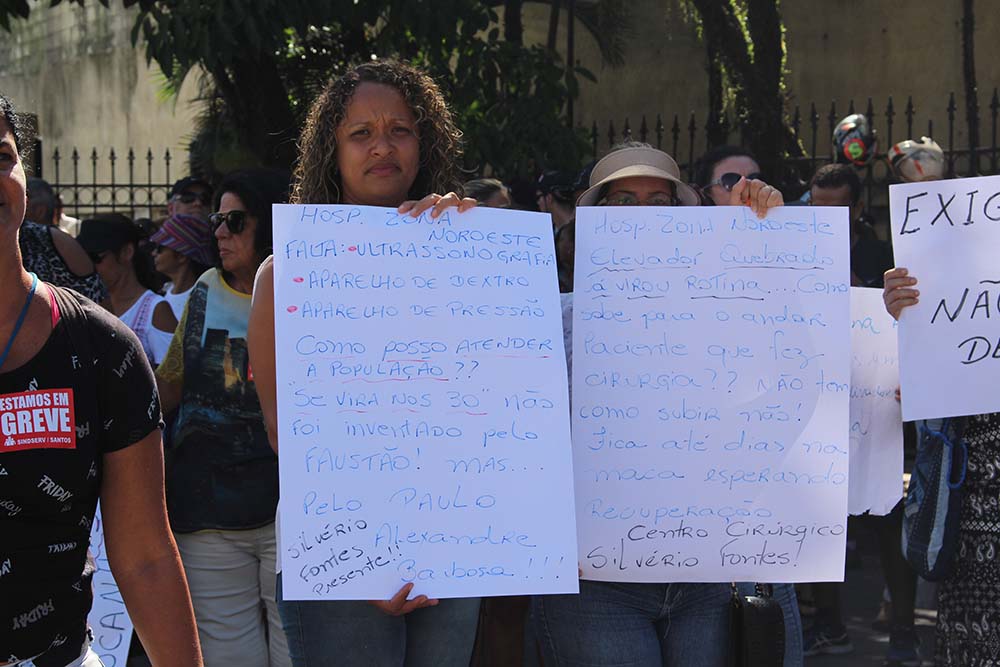 ESTAMOS EM
GREVE
SINDSERV / SANTOS
FRIDAY
FRIDAY
HOSP. ZONA
NOROESTE
FALTA: • ULTRASSONOGRAFIA
• APARELHO DE DEXTRO
• APARELHO DE PRESSÃO
COMO POSSO ATENDER
A POPULAÇÃO??
"SE VIRA NOS 30" NÃO
FOI INVENTADO PELO
FAUSTÃO! MAS....
PELO PAULO
Alexandre
Barbosa!!!
SILVÉRIO
FONTES
PRESENTE!!
HOSP. ZONA NOROESTE
ELEVADOR QUEBRADO
JÁ VIROU ROTINA.... COMO
sobe para o andar
Paciente que fez
CIRURGIA?? NÃO tem
como subir não!
Fica até dias na
maca esperando
Recuperação
CENTRO CIRÚRGICO
SILVÉRIO FONTES!
EXIG
NÃO
DE